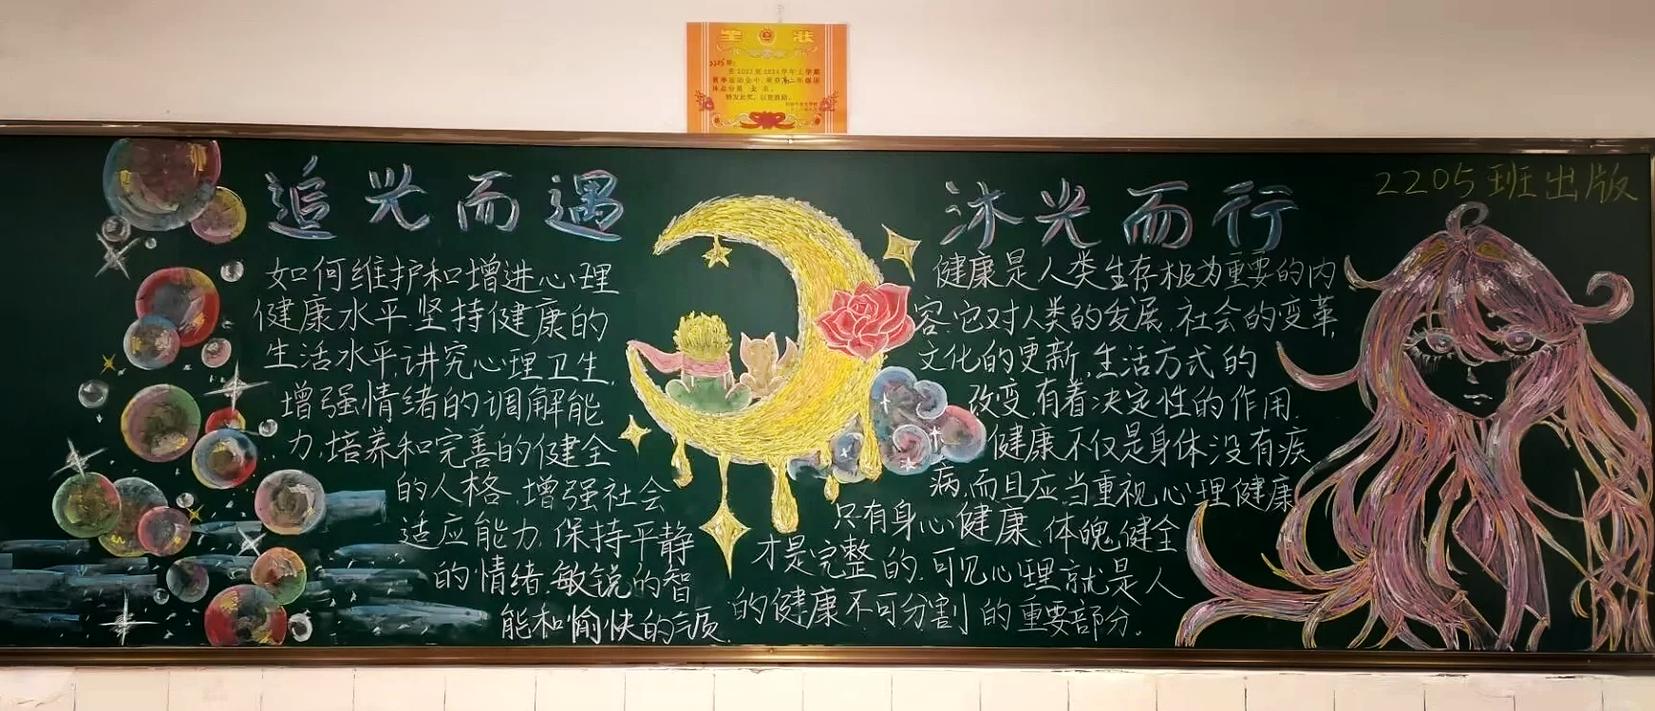 奖状
2205班:
追光而遇
如何维护和增进心理
健康水平.坚持健康的
生活水平,讲究心理卫生,
增强情绪的调解能
力,培养和完善的健全
的人格.增强社会
适应能力,保持平静
的情绪.敏锐的智
能和愉快的气质.
沐光而行
健康是人类生存极为重要的内
容.它对人类的发展,社会的变革,
文化的更新,生活方式的
改变,有着决定性的作用.
健康不仅是身体没有疾
病,而且应当重视心理健康
只有身心健康、体魄健全
才是完整的.可见心理就是人
的健康不可分割的重要部分.
2205班出版